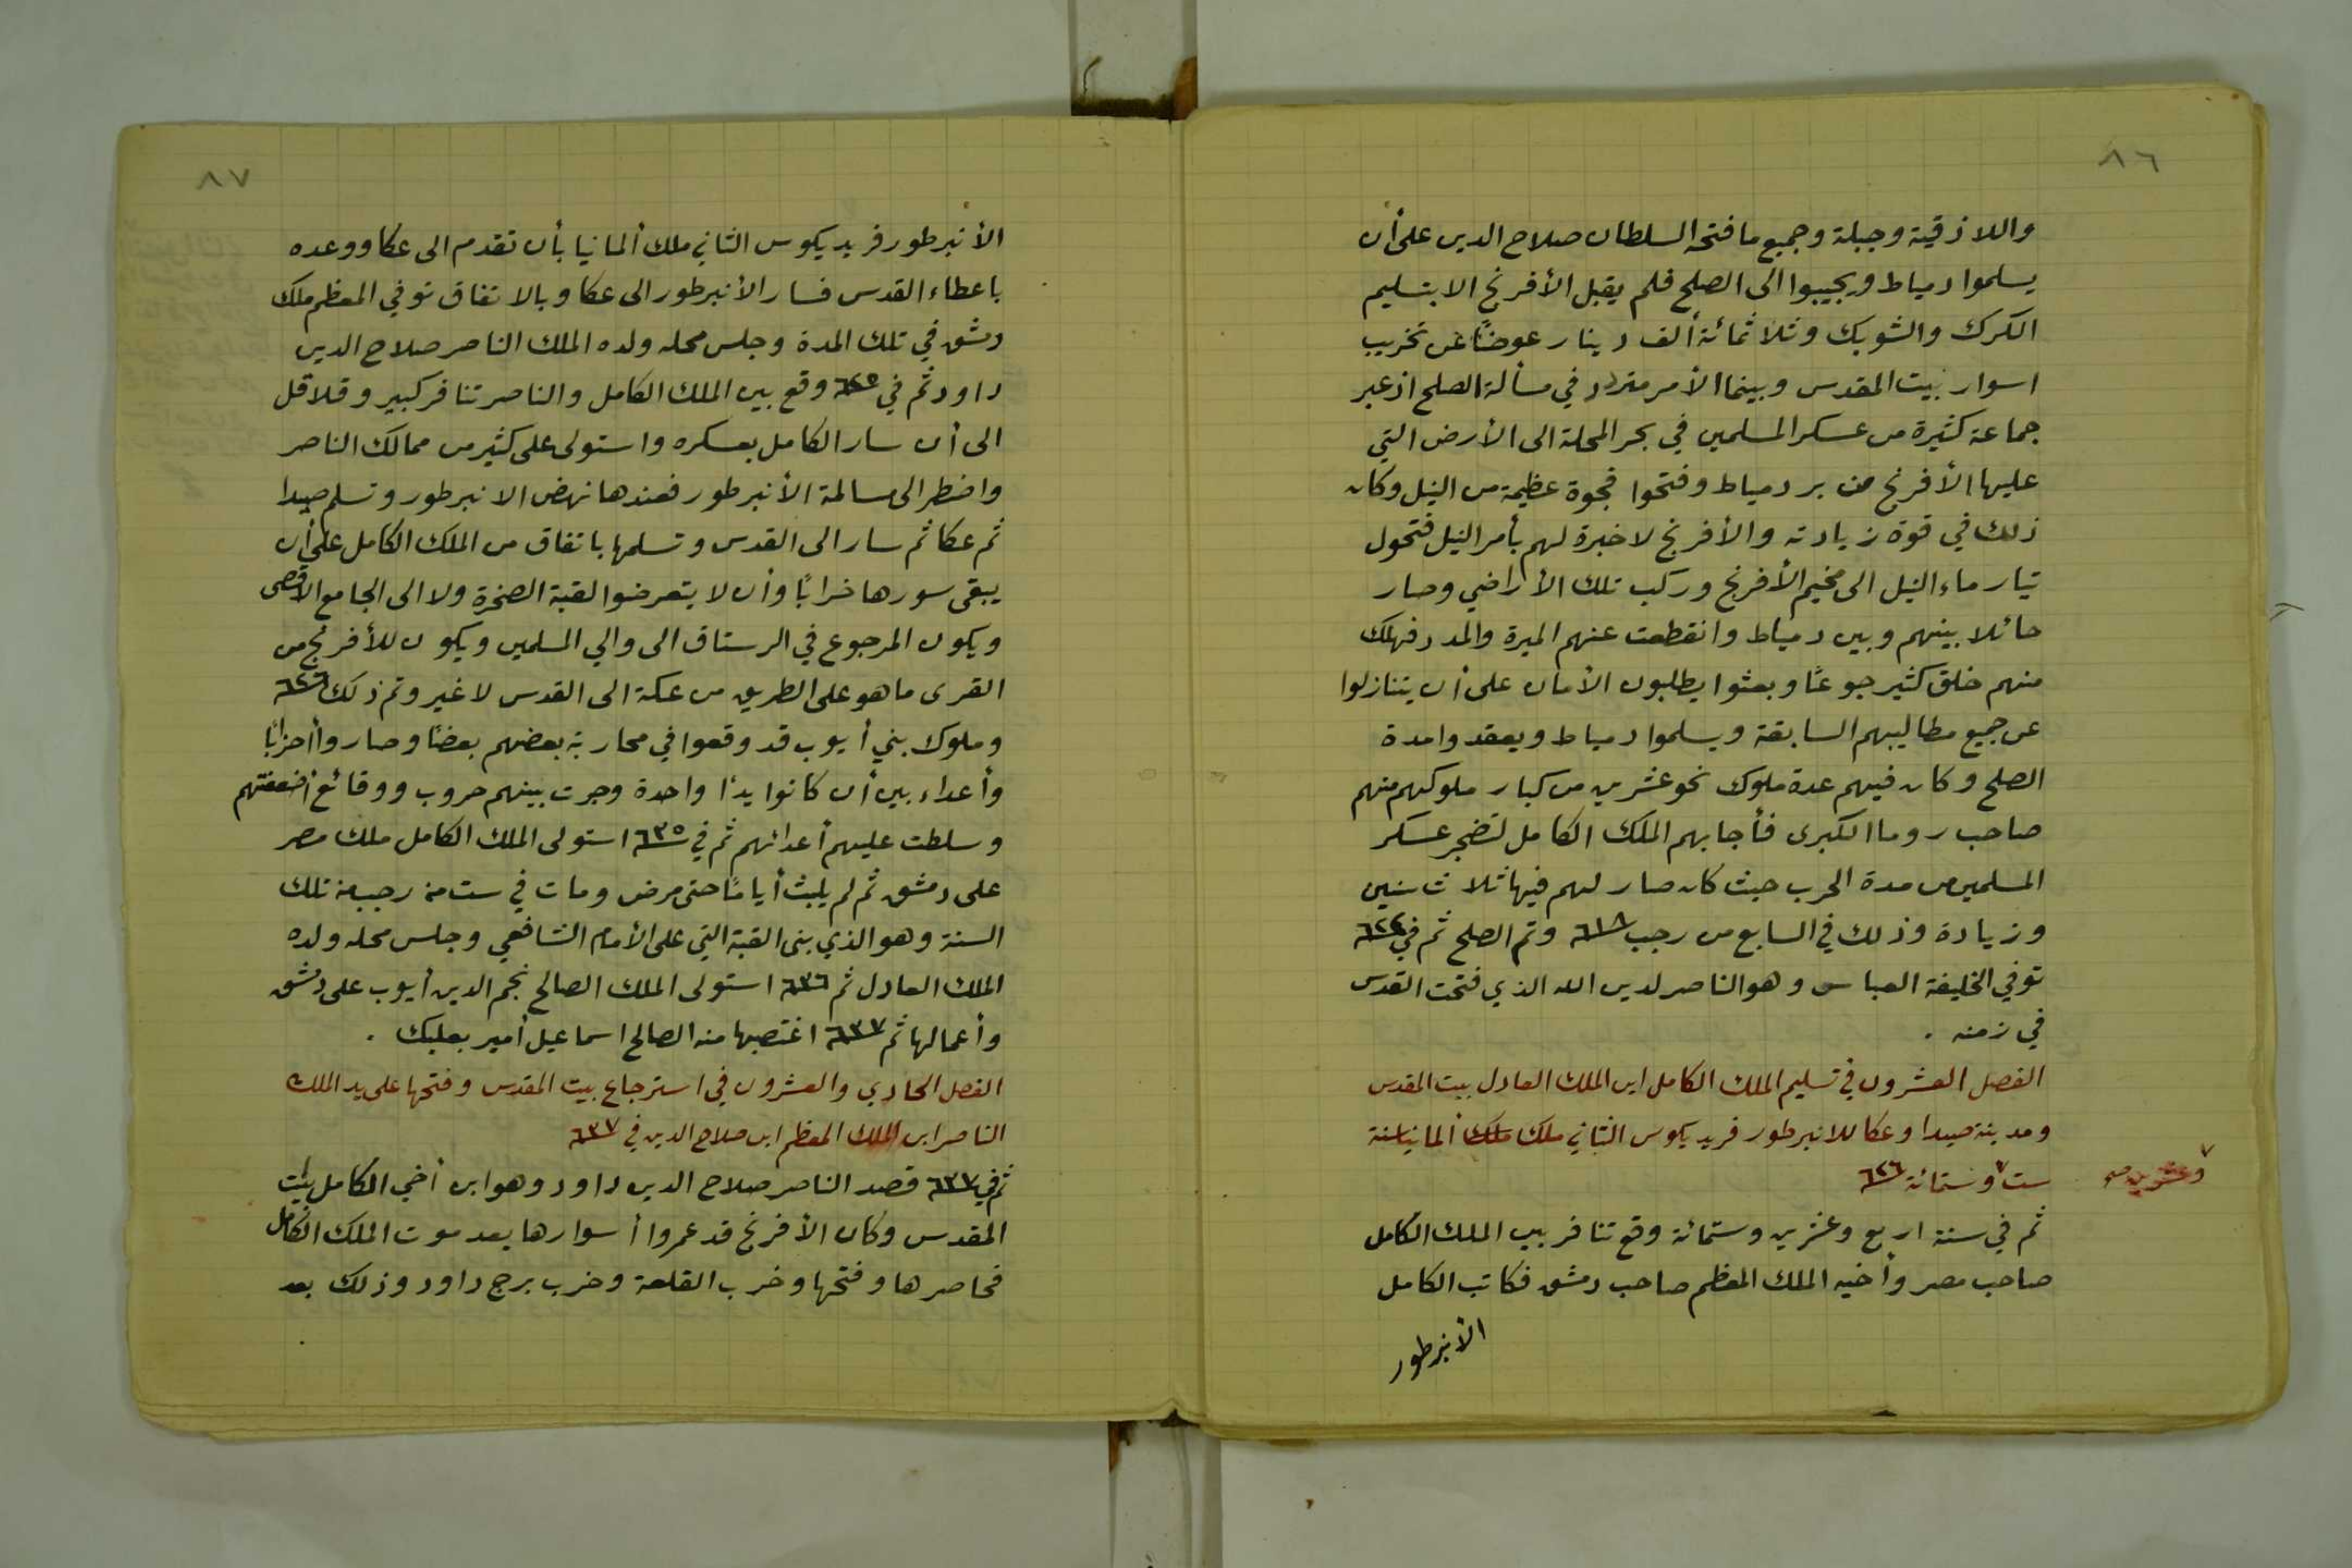 ٨٦
واللاذقية وجبلة وجميع ما فتحه السلطان صلاح الدين على أن
يسلموا دمياط ويجيبوا الى الصلح فلم يقبل الأفرنج الا بتسليم
الكرك والشوبك وثلاثمائة ألف دينار عوضًا عن تخريب
اسوار بيت المقدس وبينما الأمر متردد في مسألة الصلح اذ عبر
جماعة كثيرة من عسكر المسلمين في بحر المحلة الى الأرض التي
عليها الأفرنج من بر دمياط وفتحوا فجوة عظيمة من النيل وكان
ذلك في قوة زيادته والأفرنج لا خبرة لهم بأمر النيل فتحول
تيار ماء النيل الى مخيم الأفرنج وركب تلك الأراضي وصار
حائلا بينهم وبين دمياط وانقطعت عنهم الميرة والمدد فهلك
منهم خلق كثير جوعًا وبعثوا يطلبون الأمان على أن يتنازلوا
عن جميع مطاليبهم السابقة ويسلموا دمياط ويعقدوا مدة
الصلح وكان فيهم عدة ملوك نحو عشرين من كبار ملوكهم منهم
صاحب روما الكبرى فأجابهم الملك الكامل لتضجر عسكر
المسلمين من مدة الحرب حيث كان صار لهم فيها ثلاث سنين
وزيادة وذلك في السابع من رجب ٦١٨ وتم الصلح ثم في ٦٢٢
توفي الخليفة العباسي وهو الناصر لدين الله الذي فتحت القدس
في زمنه .
الفصل العشرون في تسليم الملك الكامل ابن الملك العادل بيت المقدس
ومدينة صيدا وعكا للانبرطور فريديكوس الثاني ملك ملك ألمانيا سنة
ست وستمائة ٦٢٦
وعشرين صح
ثم في سنة اربع وعشرين وستمائة وقع تنافر بين الملك الكامل
صاحب مصر وأخيه الملك المعظم صاحب دمشق فكاتب الكامل
الأنبرطور
٨٧
الأنبرطور فريديكوس الثاني ملك ألمانيا بأن تقدم الى عكا ووعده
باعطاء القدس فسار الأنبرطور الى عكا وبالاتفاق توفي المعظم ملك
دمشق في تلك المدة وجلس محله ولده الملك الناصر صلاح الدين
داود ثم في ٦٢٥ وقع بين الملك الكامل والناصر تنافر كبير وقلاقل
الى أن سار الكامل بعسكره واستولى على كثير من ممالك الناصر
واضطر الى مسالمة الأنبرطور فعندها نهض الانبرطور وتسلم صيدا
ثم عكا ثم سار الى القدس وتسلمها باتفاق من الملك الكامل على أن
يبقى سورها خرابًا وأن لا يتعرضوا لقبة الصخرة ولا الى الجامع الاقصى
ويكون المرجوع في الرستاق الى والي المسلمين ويكون للأفرنج من
القرى ما هو على الطريق من عكة الى القدس لا غير وتم ذلك ٦٢٦
وملوك بني أيوب قد وقعوا في محاربة بعضهم بعضًا وصاروا أحزابًا
وأعداء بين أن كانوا يدًا واحدة وجرت بينهم حروب ووقائع أضعفتهم
وسلطت عليهم أعدائهم ثم في ٦٣٥ استولى الملك الكامل ملك مصر
على دمشق ثم لم يلبث أيامًا حتى مرض ومات في ست من رجب من تلك
السنة وهو الذي بنى القبة التي على الأمام الشافعي وجلس محله ولده
الملك العادل ثم ٦٣٦ استولى الملك الصالح نجم الدين أيوب على دمشق
وأعمالها ثم ٦٣٧ اغتصبها منه الصالح اسماعيل أمير بعلبك .
الفصل الحادي والعشرون في استرجاع بيت المقدس وفتحها على يد الملك
الناصر ابن الملك المعظم ابن صلاح الدين في ٦٣٧
ثم في ٦٣٧ قصد الناصر صلاح الدين داود وهو ابن أخي الكامل بيت
المقدس وكان الأفرنج قد عمروا أسوارها بعد موت الملك الكامل
فحاصرها وفتحها وخرب القلعة وخرب برج داود وذلك بعد